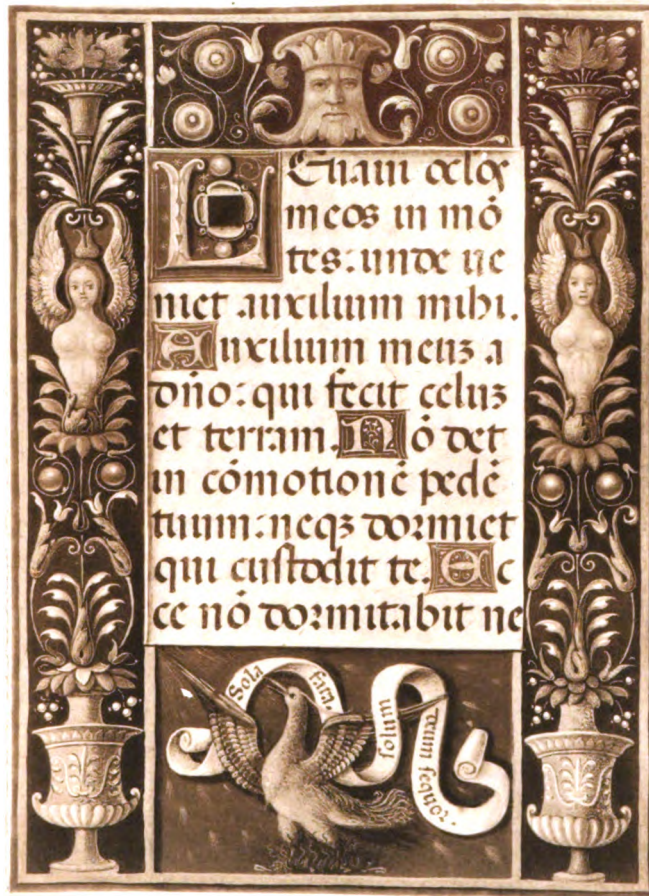 LEuaui oclos
meos in mõ
tes: unde ue
niet auxilium mihi.
Auxilium meuʒ a
dño: qui fecit celuʒ
et terram. Nõ det
in cõmotionẽ pedẽ
tuum: neqʒ dormiet
qui custodit te. Ec
ce nõ dormitabit ne
Sola
fata.
solum
deum sequor.